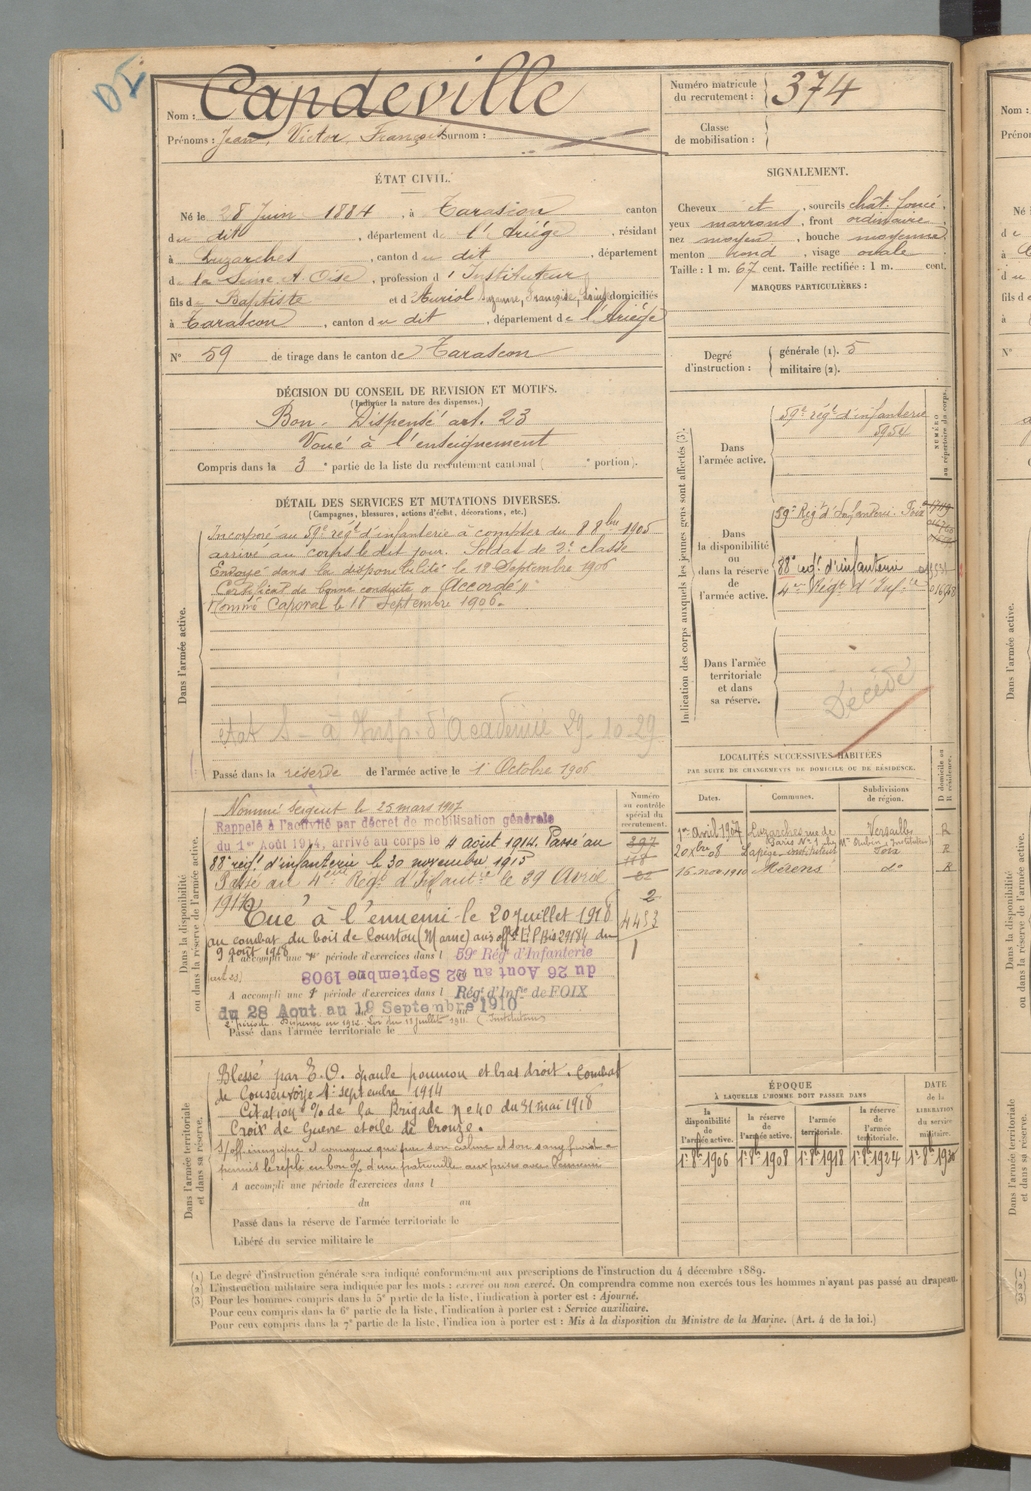 Nom : Capdeville
Prénoms : Jean, Victor, François Surnom :
Numéro matricule du recrutement : 374
Classe de mobilisation :
ÉTAT CIVIL.
Né le 28 Juin 1884, à Tarascon canton
du dit, département de l'Ariége, résidant
à Luzarches, canton du dit, département
de la Seine et Oise, profession d'Instituteur
fils de Baptiste et d'Auriol Suzanne, Françoise, domiciliés
à Tarascon, canton du dit, département de l'Ariége
N° 59 de tirage dans le canton de Tarascon
DÉCISION DU CONSEIL DE REVISION ET MOTIFS.
(Indiquer la nature des dispenses.)
Bon. Dispensé art. 23
Voué à l'enseignement
Compris dans la 3e partie de la liste du recrutement cantonal ( e portion).
SIGNALEMENT.
Cheveux et, sourcils chât. foncé,
yeux marrons, front ordinaire
nez moyen, bouche moyenne
menton rond, visage ovale
Taille : 1 m. 67 cent. Taille rectifiée : 1 m. cent.
MARQUES PARTICULIÈRES :
Degré d'instruction : générale (1). 5
militaire (2).
DÉTAIL DES SERVICES ET MUTATIONS DIVERSES.
(Campagnes, blessures, actions d'éclat, décorations, etc.)
Dans l'armée active.
Incorporé au 59e régt d'infanterie à compter du 8 8bre 1905
arrivé au corps le dit jour. Soldat de 2e classe
Envoyé dans la disponibilité le 18 Septembre 1906
Certificat de bonne conduite "Accordé"
Nommé Caporal le 18 Septembre 1906.
Etat S à Insp. d'Académie 29-10-29
Passé dans la réserve de l'armée active le 1 Octobre 1906
Indication des corps auxquels les jeunes gens sont affectés (3).
NUMÉRO au répertoire du corps.
Dans l'armée active.
59e régt d'infanterie
5954
Dans la disponibilité ou dans la réserve de l'armée active.
59e Régt d'Infanterie. Foix
88e régt d'infanterie
4e Régt d'Infie
Dans l'armée territoriale et dans sa réserve.
Décédé
Dans la disponibilité ou dans la réserve de l'armée active.
Nommé Sergent le 25 mars 1907
Rappelé à l'activité par décret de mobilisation générale
du 1er Août 1914, arrivé au corps le 4 août 1914. Passé au
88e régt d'infanterie le 30 novembre 1915
Passé au 4eme Régt d'Infantie le 29 Avril
1917
Tué à l'ennemi le 20 juillet 1918
au combat du bois de Courton (Marne) avis offel E.P. Bis 29184 du
9 août 1918
A accompli une 1e période d'exercices dans l 59e Régt d'Infanterie
du 26 Aout au 22 Septembre 1908
A accompli une période d'exercices dans l Régt d'Infie de FOIX
du 28 Aout au 19 Septembre 1910
Passé dans l'armée territoriale le
Numéro au contrôle spécial du recrutement.
397
118
2
4453
1
LOCALITÉS SUCCESSIVES HABITÉES
PAR SUITE DE CHANGEMENTS DE DOMICILE OU DE RÉSIDENCE.
Dates. Communes. Subdivisions de région. D domicile ou R résidence.
1er Avril 1907 Luzarches rue de Paris Versailles R
20 Xbre 08 Lapège instituteur Foix R
16 nov 1910 Mérens do R
Dans l'armée territoriale et dans sa réserve.
Blessé par E.O. épaule poumon et bras droit. Combat
de Consenvoye 1er septembre 1914
Citation % de la Brigade No 40 du 31 mai 1918
Croix de Guerre étoile de bronze.
A accompli une période d'exercices dans l
du au
Passé dans la réserve de l'armée territoriale le
Libéré du service militaire le
ÉPOQUE
À LAQUELLE L'HOMME DOIT PASSER DANS
la disponibilité de l'armée active.
la réserve de l'armée active.
l'armée territoriale.
la réserve de l'armée territoriale.
DATE de la LIBÉRATION du service militaire.
1r 8bre 1906 1r 8bre 1908 1r 8bre 1918 1r 8bre 1924 1r 8bre 1930
(1) Le degré d'instruction générale sera indiqué conformément aux prescriptions de l'instruction du 4 décembre 1889.
(2) L'instruction militaire sera indiquée par les mots : exercé ou non exercé. On comprendra comme non exercés tous les hommes n'ayant pas passé au drapeau.
(3) Pour les hommes compris dans la 5e partie de la liste, l'indication à porter est : Ajourné.
Pour ceux compris dans la 6e partie de la liste, l'indication à porter est : Service auxiliaire.
Pour ceux compris dans la 7e partie de la liste, l'indication à porter est : Mis à la disposition du Ministre de la Marine. (Art. 4 de la loi.)